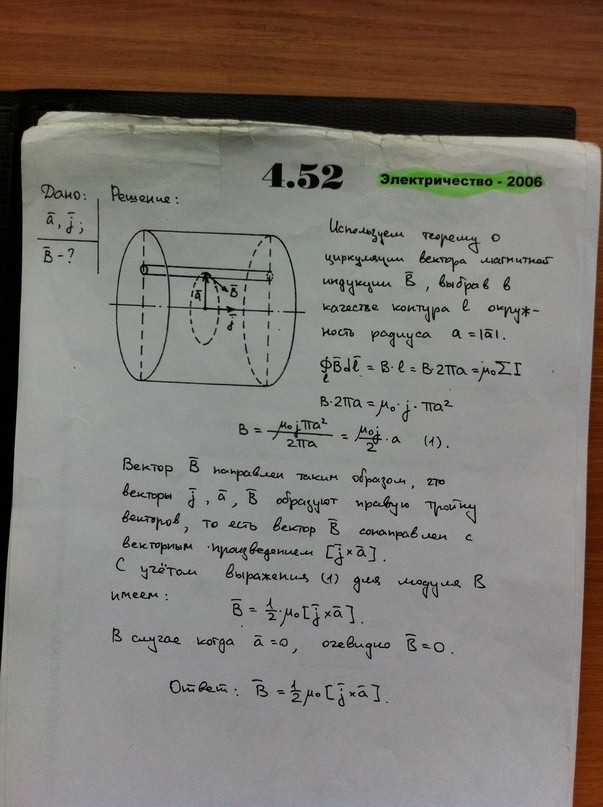 4.52
Электричество - 2006
Дано:
a̅, j̅;
B̅ - ?
Решение:
a̅
B̅
j̅
Используем теорему о
циркуляции вектора магнитной
индукции B̅, выбрав в
качестве контура l окруж-
ность радиуса a = |a̅|.
∮B̅dl̅ = B·l = B·2πa = μ₀ΣI
l
B·2πa = μ₀·j·πa²
B = μ₀jπa²/2πa = μ₀j/2 · a (1).
Вектор B̅ направлен таким образом, что
векторы j̅, a̅, B̅ образуют правую тройку
векторов, то есть вектор B̅ сонаправлен с
векторным произведением [j̅×a̅].
С учётом выражения (1) для модуля B
имеем:
B̅ = 1/2·μ₀[j̅×a̅].
В случае когда a̅ = 0, очевидно B̅ = 0.
Ответ: B̅ = 1/2 μ₀[j̅×a̅].